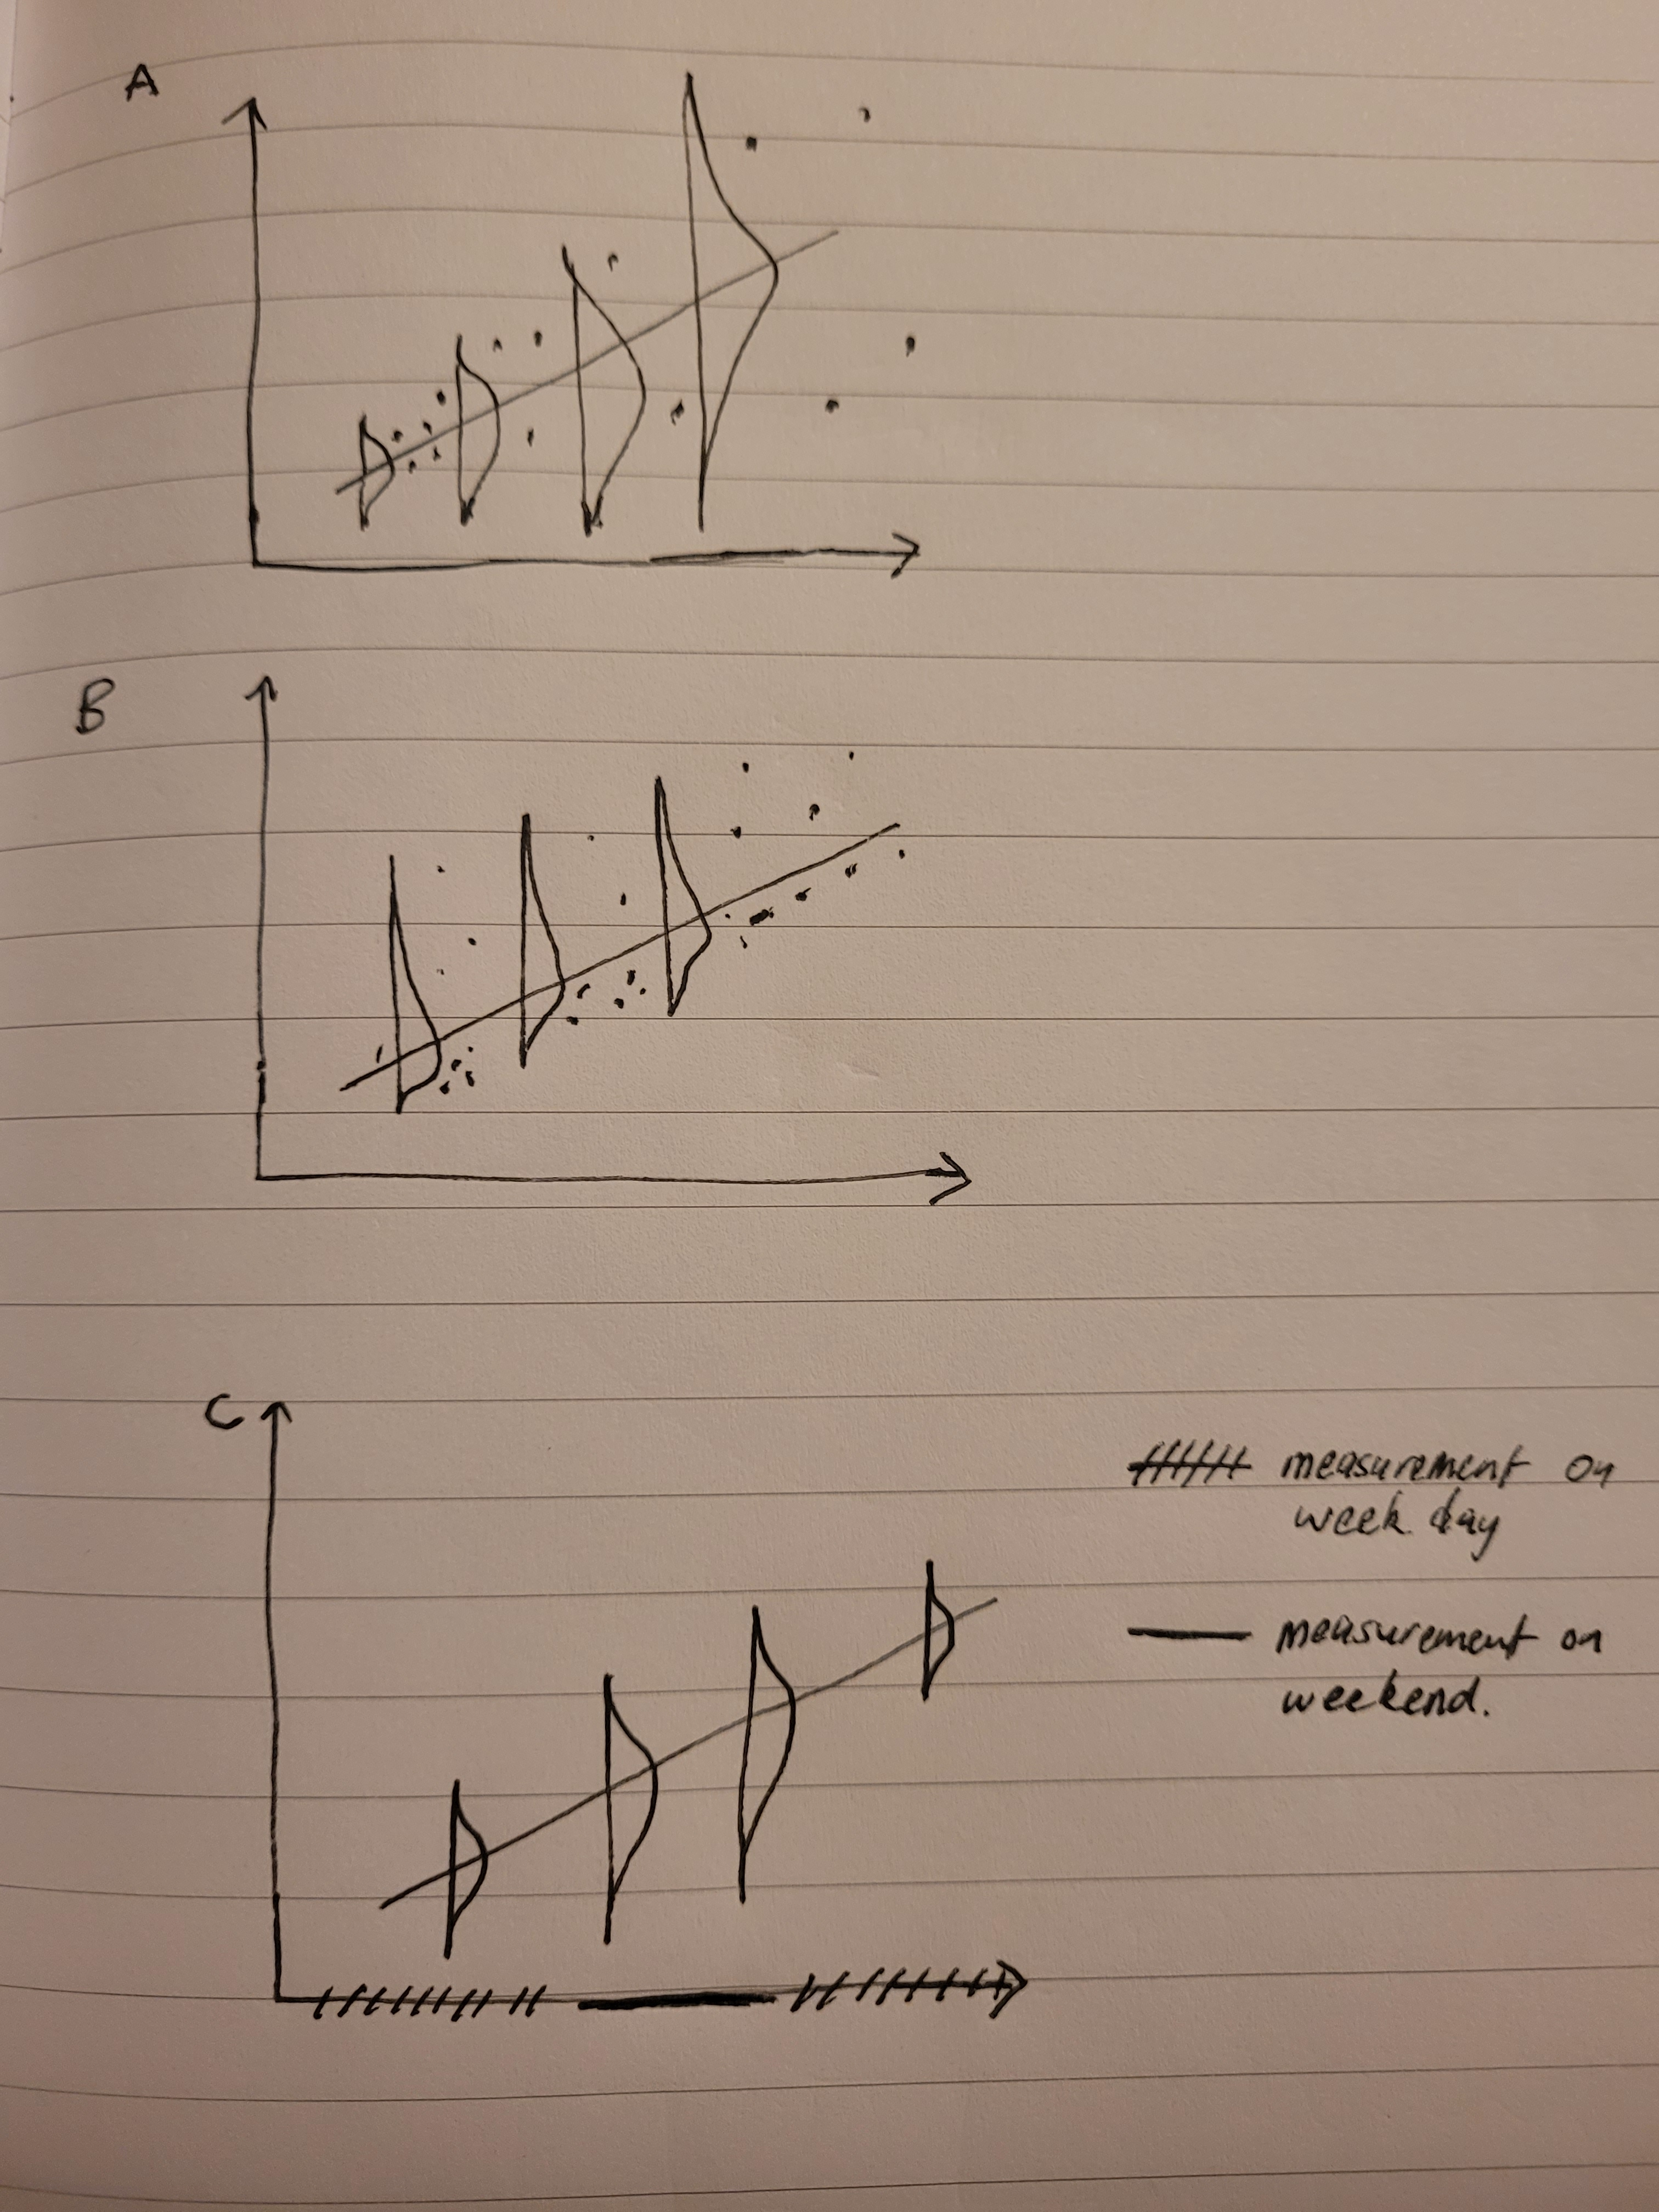 A
B
C
measurement on
week day
measurement on
weekend.